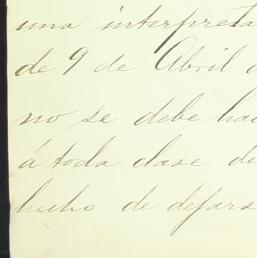 una interpreta
de 9 de Abril
no se debe hac
á toda clase de
hecho de defars